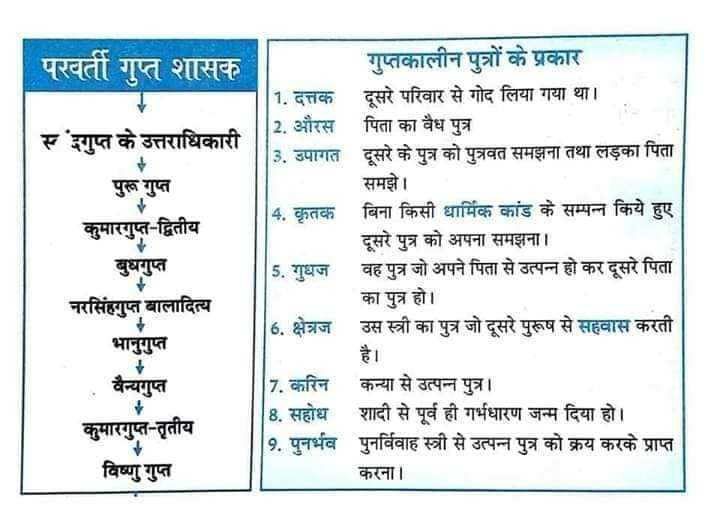 परवर्ती गुप्त शासक
स्कंदगुप्त के उत्तराधिकारी
पुरू गुप्त
कुमारगुप्त-द्वितीय
बुधगुप्त
नरसिंहगुप्त बालादित्य
भानुगुप्त
वैन्यगुप्त
कुमारगुप्त-तृतीय
विष्णु गुप्त
गुप्तकालीन पुत्रों के प्रकार
1. दत्तक दूसरे परिवार से गोद लिया गया था।
2. औरस पिता का वैध पुत्र
3. उपागत दूसरे के पुत्र को पुत्रवत समझना तथा लड़का पिता
समझे।
4. कृतक बिना किसी धार्मिक कांड के सम्पन्न किये हुए
दूसरे पुत्र को अपना समझना।
5. गुधज वह पुत्र जो अपने पिता से उत्पन्न हो कर दूसरे पिता
का पुत्र हो।
6. क्षेत्रज उस स्त्री का पुत्र जो दूसरे पुरूष से सहवास करती
है।
7. करिन कन्या से उत्पन्न पुत्र।
8. सहोध शादी से पूर्व ही गर्भधारण जन्म दिया हो।
9. पुनर्भव पुनर्विवाह स्त्री से उत्पन्न पुत्र को क्रय करके प्राप्त
करना।